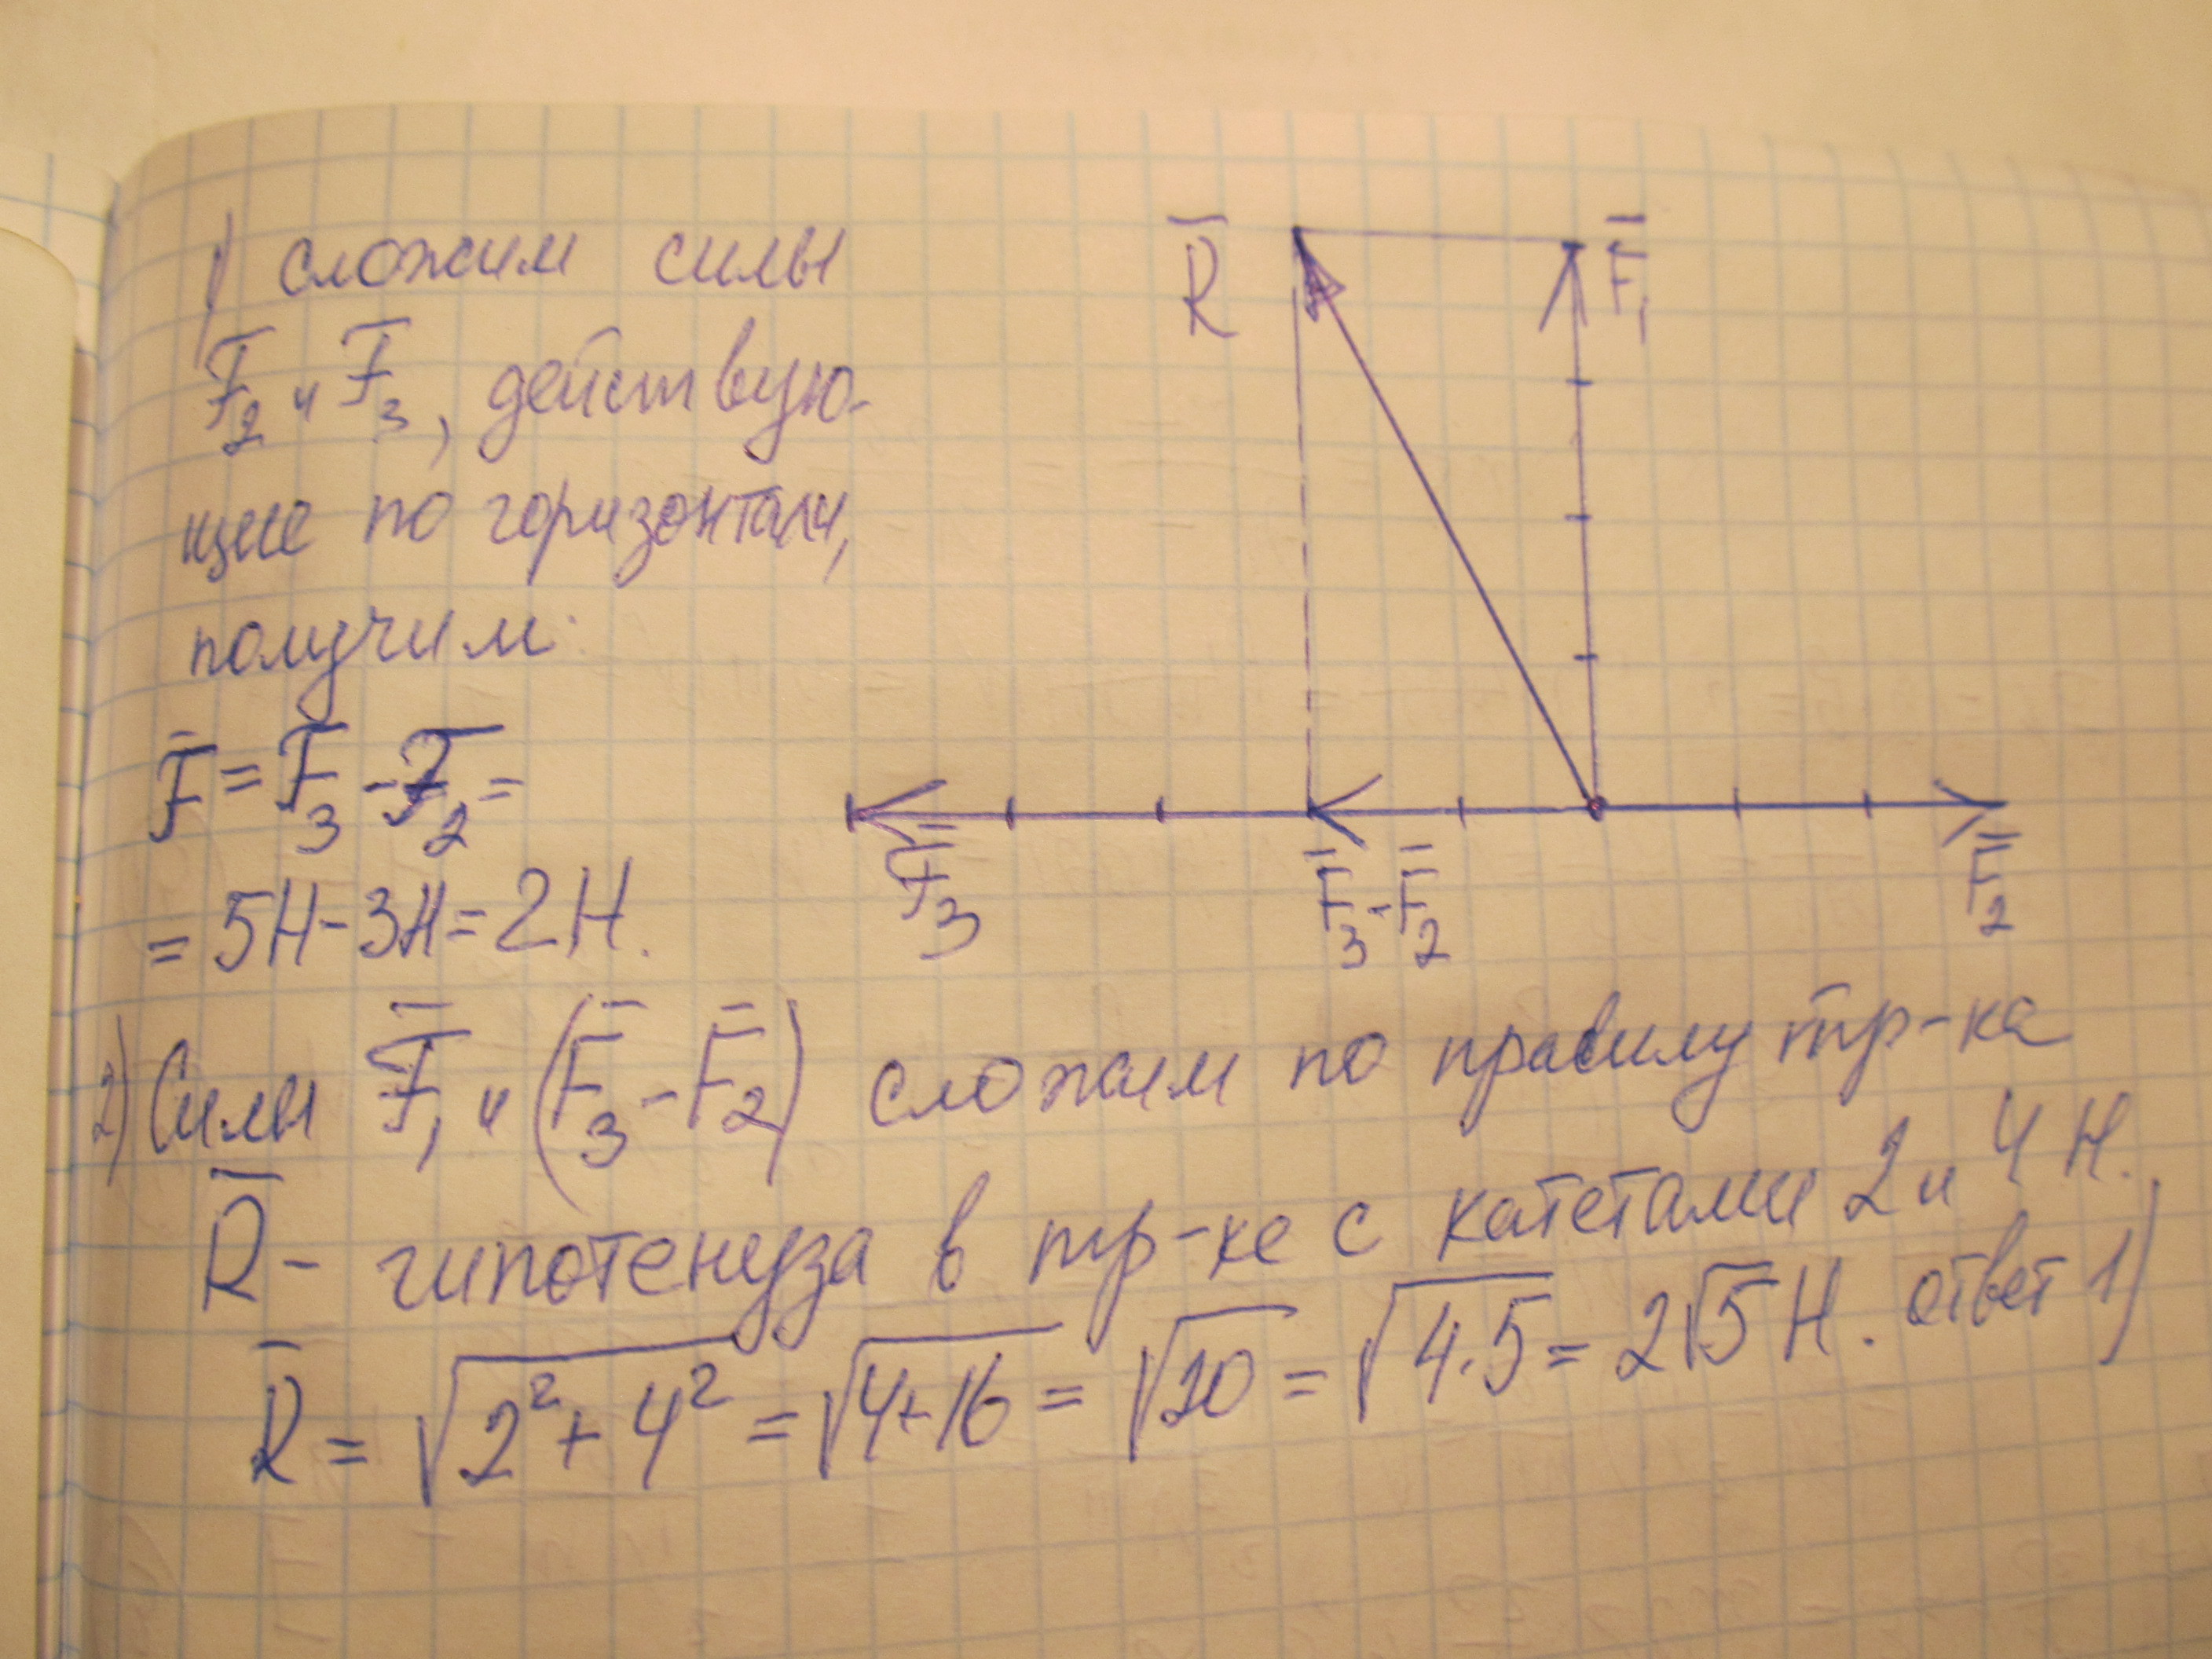 1) сложим силы
F̅₂ и F̅₃, действую-
щие по горизонтали,
получим:
F̅ = F̅₃ - F̅₂ =
= 5Н - 3Н = 2Н.
R̅
F̅₁
F̅₃
F̅₃-F̅₂
F̅₂
2) Силы F̅₁ и (F̅₃ - F̅₂) сложим по правилу тр-ка
R̅ - гипотенуза в тр-ке с катетами 2 и 4 Н.
R̅ = √2² + 4² = √4+16 = √20 = √4·5 = 2√5 Н. ответ 1)